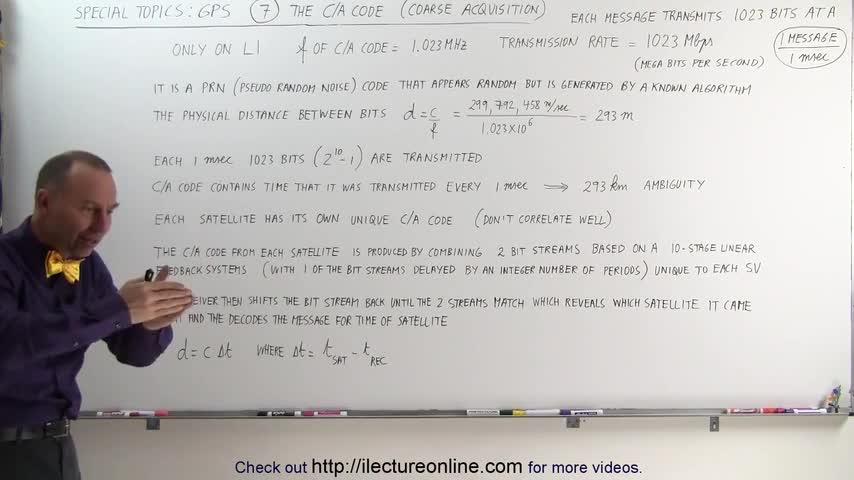 SPECIAL TOPICS: GPS 7 THE C/A CODE (COARSE ACQUISITION)
EACH MESSAGE TRANSMITS 1023 BITS AT A
ONLY ON L1 f OF C/A CODE = 1.023 MHZ TRANSMISSION RATE = 1023 Mbps
(MEGA BITS PER SECOND)
1 MESSAGE
1 msec
IT IS A PRN (PSEUDO RANDOM NOISE) CODE THAT APPEARS RANDOM BUT IS GENERATED BY A KNOWN ALGORITHM
THE PHYSICAL DISTANCE BETWEEN BITS d = c/f = 299,792,458 m/sec / 1.023×10^6 = 293 m
EACH 1 msec 1023 BITS (2^10-1) ARE TRANSMITTED
C/A CODE CONTAINS TIME THAT IT WAS TRANSMITTED EVERY 1 msec ⟹ 293 km AMBIGUITY
EACH SATELLITE HAS ITS OWN UNIQUE C/A CODE (DON'T CORRELATE WELL)
THE C/A CODE FROM EACH SATELLITE IS PRODUCED BY COMBINING 2 BIT STREAMS BASED ON A 10-STAGE LINEAR
FEEDBACK SYSTEMS (WITH 1 OF THE BIT STREAMS DELAYED BY AN INTEGER NUMBER OF PERIODS) UNIQUE TO EACH SV
THEN SHIFTS THE BIT STREAM BACK UNTIL THE 2 STREAMS MATCH WHICH REVEALS WHICH SATELLITE IT CAME
AND THE DECODES THE MESSAGE FOR TIME OF SATELLITE
d = c Δt WHERE Δt = t_SAT - t_REC
Check out http://ilectureonline.com for more videos.